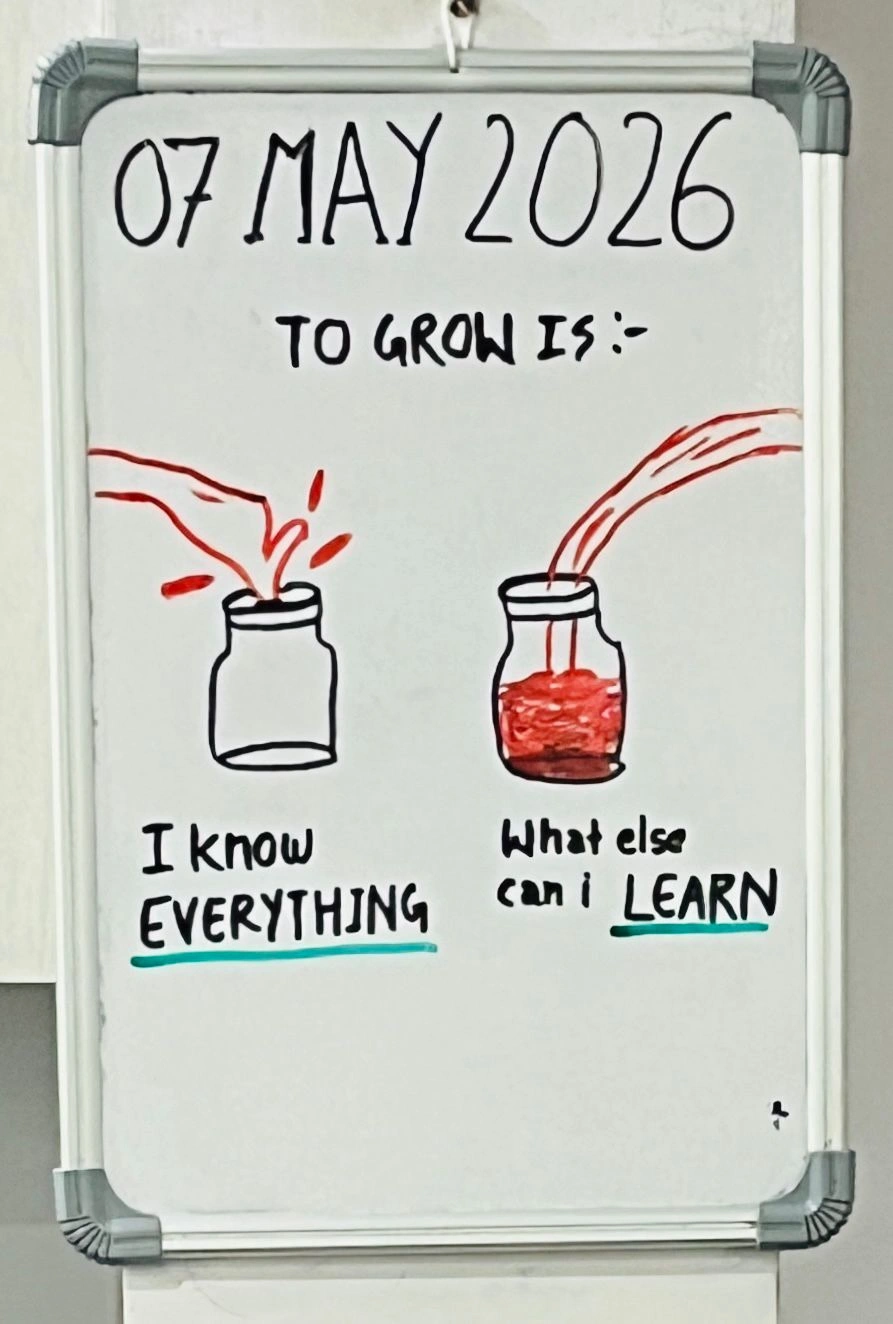 07 MAY 2026
TO GROW IS :-
I know
EVERYTHING
What else
can i LEARN